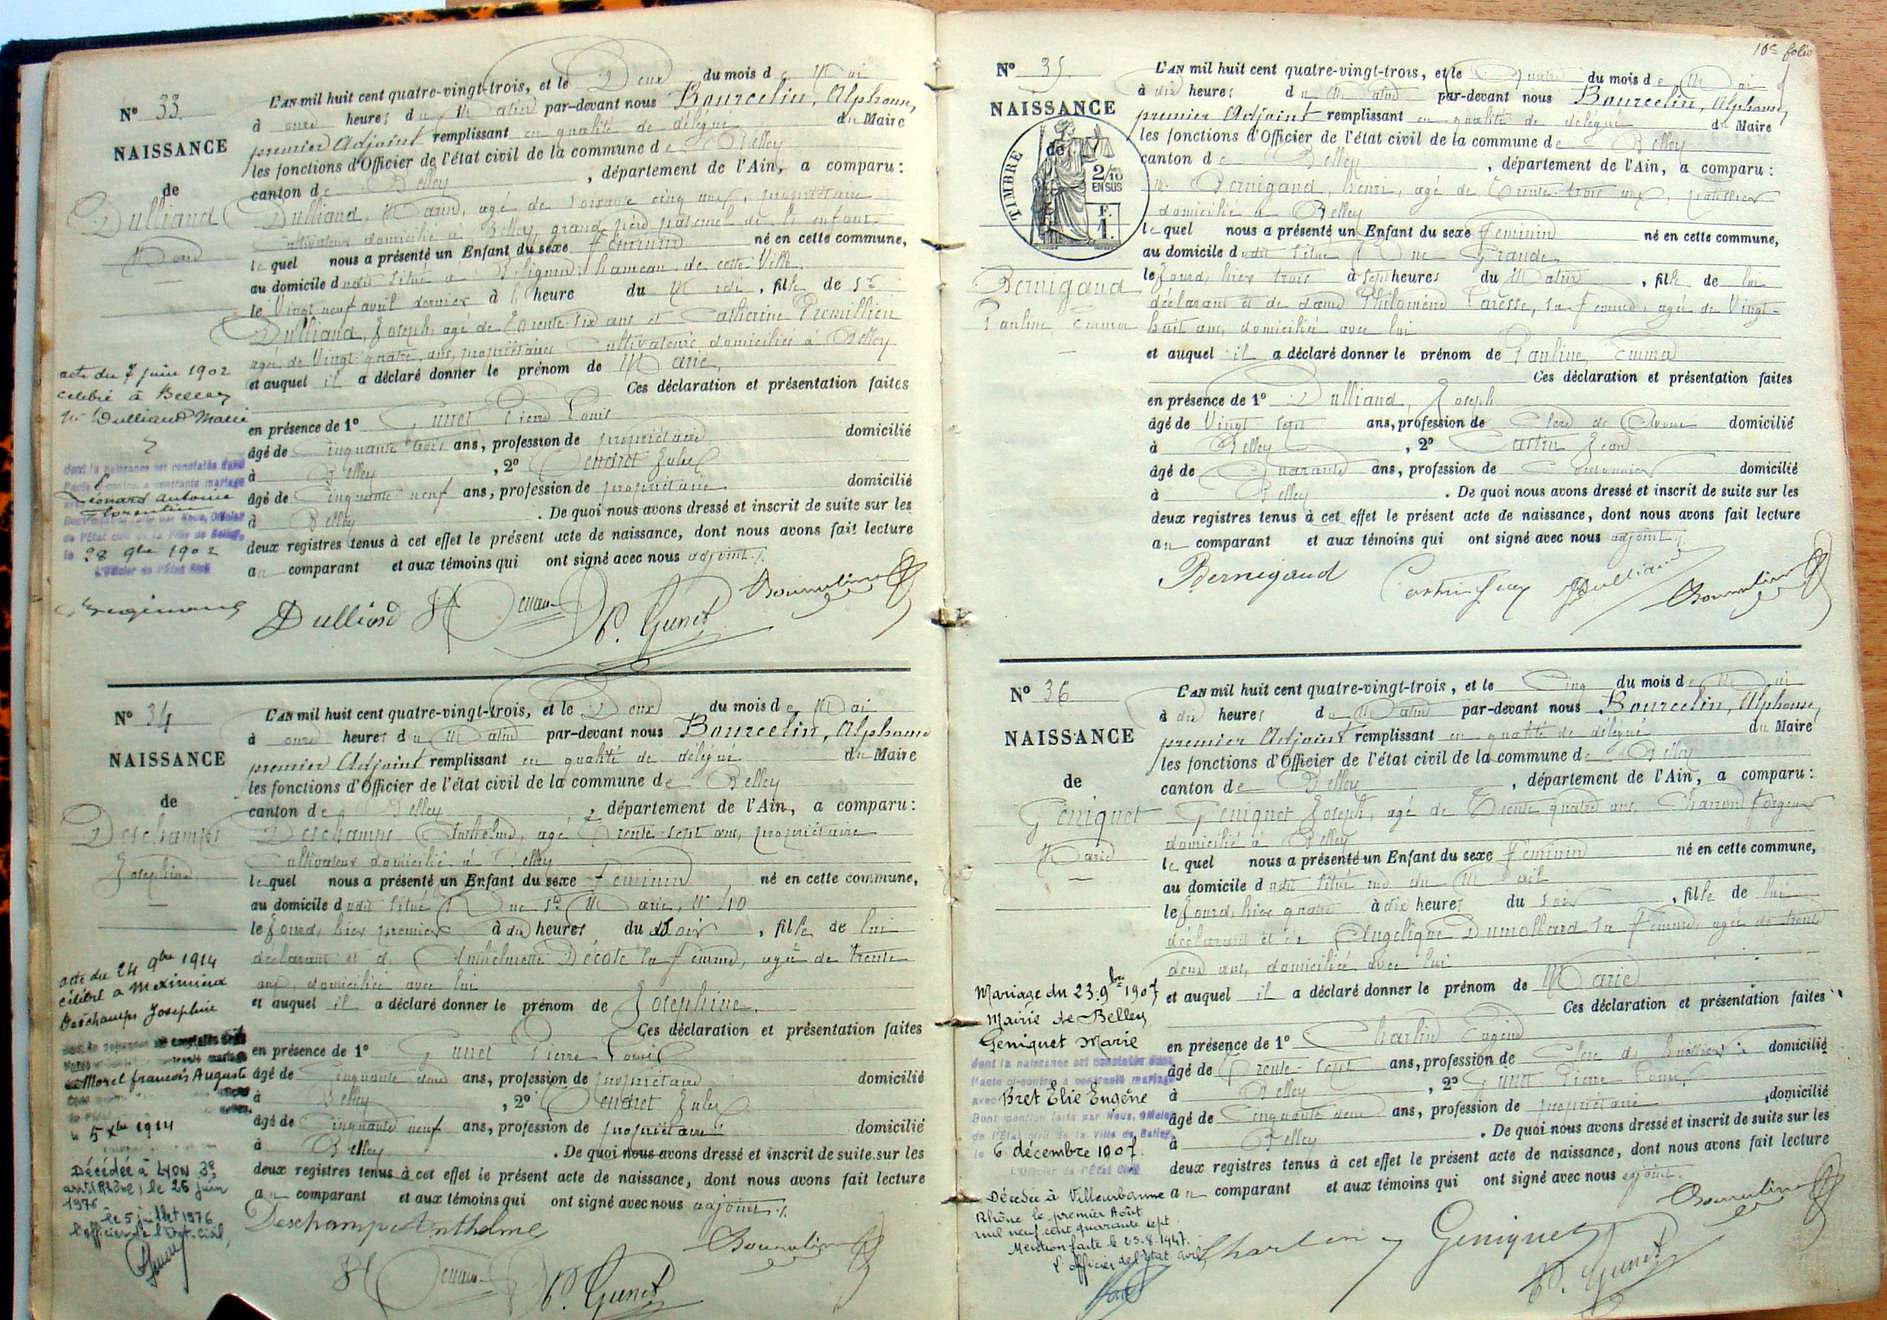 Nº 33.
NAISSANCE
de
Dulliand
Marie
L'AN mil huit cent quatre-vingt-trois, et le Deux du mois de Mai
à onze heures du Matin par-devant nous Bourcelin, Alphonse,
premier Adjoint remplissant en qualité de délégué du Maire
les fonctions d'Officier de l'état civil de la commune de Belley
canton de Belley, département de l'Ain, a comparu:
Dulliand, Marie, agé de soixante cinq ans, propriétaire
Cultivateur domicilié à Belley, grand père paternel de l'enfant
lequel nous a présenté un Enfant du sexe féminin né en cette commune,
au domicile dudit situé à hameau de cette Ville
le Vingt neuf avril dernier à heure du Midi, fille de
Dulliand, Joseph, agé de Trente six ans et Catherine Premillieu
agée de Vingt quatre ans, propriétaires Cultivateurs domiciliés à Belley
et auquel il a déclaré donner le prénom de Marie,
Ces déclaration et présentation faites
en présence de 1º Gunet Pierre Louis
âgé de Cinquante trois ans, profession de propriétaire domicilié
à Belley, 2º Jules
âgé de Cinquante neuf ans, profession de propriétaire domicilié
à Belley. De quoi nous avons dressé et inscrit de suite sur les
deux registres tenus à cet effet le présent acte de naissance, dont nous avons fait lecture
au comparant et aux témoins qui ont signé avec nous adjoint.
Dulliand P. Gunet Bourcelin
acte du 7 juin 1902
célébré à Belley
Dulliand Marie
dont la naissance est constatée dans
l'acte ci-contre a contracté mariage
avec
Léonard Antoine
Florentin
Dont mention faite par Nous, Officier
de l'État civil de la Ville de Belley,
le 28 9bre 1902
L'Officier de l'État Civil
Nº 34
NAISSANCE
de
Deschamps
Joséphine
L'AN mil huit cent quatre-vingt-trois, et le Deux du mois de Mai
à onze heures du Matin par-devant nous Bourcelin, Alphonse
premier Adjoint remplissant en qualité de délégué du Maire
les fonctions d'Officier de l'état civil de la commune de Belley
canton de Belley, département de l'Ain, a comparu:
Deschamps Anthelme, agé Trente sept ans, propriétaire
Cultivateur domicilié à Belley
lequel nous a présenté un Enfant du sexe féminin né en cette commune,
au domicile dudit situé Rue Ste Marie, Nº 10
le Jourd'hier premier à dix heures du Soir, fille de lui
déclarant et de Anthelmette Décote sa femme, agée de trente
ans, domiciliée avec lui
et auquel il a déclaré donner le prénom de Joséphine.
Ces déclaration et présentation faites
en présence de 1º Gunet Pierre Louis
âgé de Cinquante deux ans, profession de propriétaire domicilié
à Belley, 2º Jules
âgé de Cinquante neuf ans, profession de propriétaire domicilié
à Belley. De quoi nous avons dressé et inscrit de suite sur les
deux registres tenus à cet effet le présent acte de naissance, dont nous avons fait lecture
au comparant et aux témoins qui ont signé avec nous adjoint.
Deschamps Anthelme Bourcelin
P. Gunet
acte du 24 9bre 1914
célébré à Meximieux
Deschamps Joséphine
Morel francois Auguste
le 5 Xbre 1914
Décédée à Lyon 3e
arrt Rhône, le 26 juin
1976
le 5 juillet 1976
l'officier de l'Etat-civil,
10e folio
Nº 35
NAISSANCE
de
TIMBRE
2/10
EN SUS
F.
1.
Bernigaud
Pauline, Emma
L'AN mil huit cent quatre-vingt-trois, et le Quatre du mois de Mai
à dix heures du Matin par-devant nous Bourcelin, Alphonse,
premier Adjoint remplissant en qualité de délégué du Maire
les fonctions d'Officier de l'état civil de la commune de Belley
canton de Belley, département de l'Ain, a comparu:
Bernigaud, Henri, agé de Trente trois ans,
domicilié à Belley
lequel nous a présenté un Enfant du sexe féminin né en cette commune,
au domicile dudit situé Rue Grande
le Jourd'hier trois à sept heures du Matin, fille de lui
déclarant et de dame Philomène Taresse, sa femme, agée de Vingt-
huit ans, domiciliée avec lui
et auquel il a déclaré donner le prénom de Pauline, Emma
Ces déclaration et présentation faites
en présence de 1º Dulliand, Joseph
âgé de Vingt sept ans, profession de Clerc de domicilié
à Belley, 2º Castin Jean
âgé de Quarante ans, profession de Cordonnier domicilié
à Belley. De quoi nous avons dressé et inscrit de suite sur les
deux registres tenus à cet effet le présent acte de naissance, dont nous avons fait lecture
au comparant et aux témoins qui ont signé avec nous adjoint
Bernigaud Castin Jean Dulliand Bourcelin
Nº 36
NAISSANCE
de
Geniquet
Marie
L'AN mil huit cent quatre-vingt-trois, et le Cinq du mois de Mai
à dix heures du Matin par-devant nous Bourcelin, Alphonse,
premier Adjoint remplissant en qualité de délégué du Maire
les fonctions d'Officier de l'état civil de la commune de Belley
canton de Belley, département de l'Ain, a comparu:
Geniquet Joseph, agé de Trente quatre ans, forgeur
domicilié à Belley
lequel nous a présenté un Enfant du sexe féminin né en cette commune,
au domicile dudit situé rue du Mail
le Jourd'hier quatre à dix heures du soir, fille de lui
déclarant et de Angélique Dumollard sa femme, agée de trente
deux ans, domiciliée avec lui
et auquel il a déclaré donner le prénom de Marie
Ces déclaration et présentation faites
en présence de 1º Charlin Eugène
âgé de Trente-sept ans, profession de Clerc d'huissier domicilié
à Belley, 2º Gunet Pierre Louis,
âgé de Cinquante deux ans, profession de propriétaire domicilié
à Belley. De quoi nous avons dressé et inscrit de suite sur les
deux registres tenus à cet effet le présent acte de naissance, dont nous avons fait lecture
au comparant et aux témoins qui ont signé avec nous adjoint.
Charlin Geniquet P. Gunet Bourcelin
Mariage du 23 9bre 1907
Mairie de Belley
Geniquet Marie
dont la naissance est constatée dans
l'acte ci-contre a contracté mariage
avec Bret Elie Eugène
Dont mention faite par Nous, Officier
de l'État civil de la Ville de Belley,
le 6 décembre 1907
L'Officier de l'État Civil
Décédée à Villeurbanne
Rhône le premier Août
mil neuf cent quarante sept
Mention faite le 23.8.1947.
l'officier de l'état civil